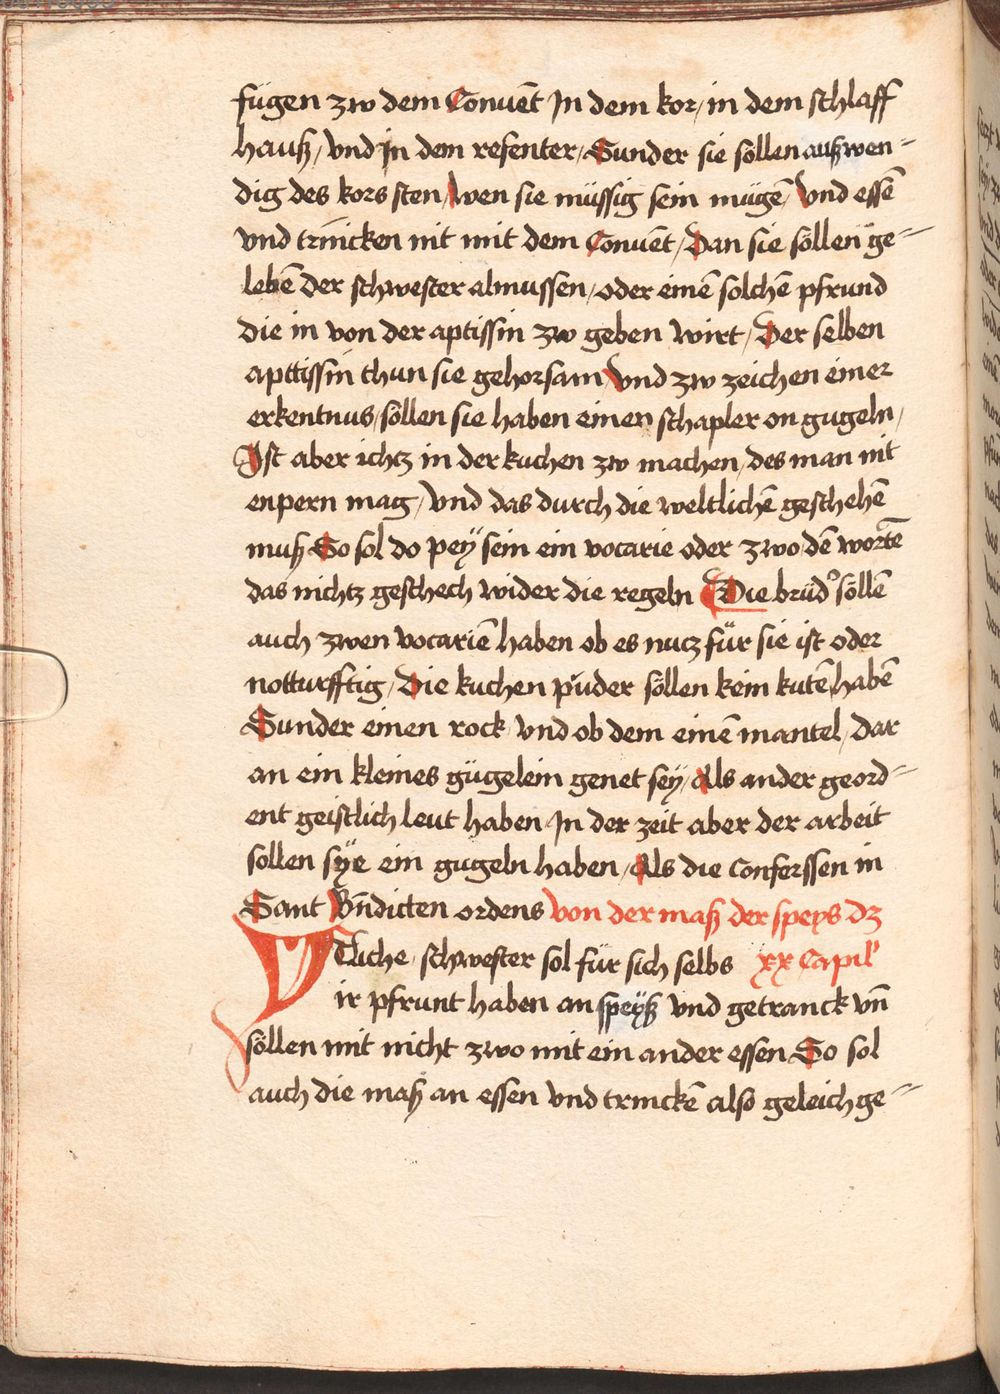 fügen zw dem Conuēt In dem kor / in dem schlaff
hauß / vnd in dem refenter / Sunder sie söllen außwen⸗
dig des kors sten / wen sie müssig sein mügē / Vnd essē
vnd trincken nit mit dem Conuēt / Dan sie söllen ge⸗
lebē der schwester almussen / oder einē solchē pfrund
die in von der aptissin zw geben wirt / Der selben
apttissin thun sie gehorsam / Vnd zw zeichen einer
erkentnus / söllen sie haben einen schapler on gugeln /
Ist aber ichtz in der kuchen zw machen / des man nit
enpern mag / Vnd das durch die weltlichē geschehē
muß So sol do peÿ sein ein vocarie oder zwo / dē wortē
das nichtz geschech wider die regeln Die brüd° söllē
auch zwen vocariē haben ob es nucz für sie ist oder
notturfftig / Die kuchen prüder söllen kein kutē haben
Sunder einen rock vnd ob dem einē mantel / dar
an ein kleines gügelein genet seÿ / Als ander geord⸗
ent geistlich leut haben In der zeit aber der arbeit
sollen sÿe ein gugeln haben / Als die conferssen in
Sant Bn̄dicten ordens von der maß der speys dz
Ytliche schwester sol für sich selbs xx Capil'
ir pfrunt haben an speÿß vnd getranck vn̄
söllen mit nicht zwo mit ein ander essen So sol
auch die maß an essen vnd trinckē also geleich ge⸗